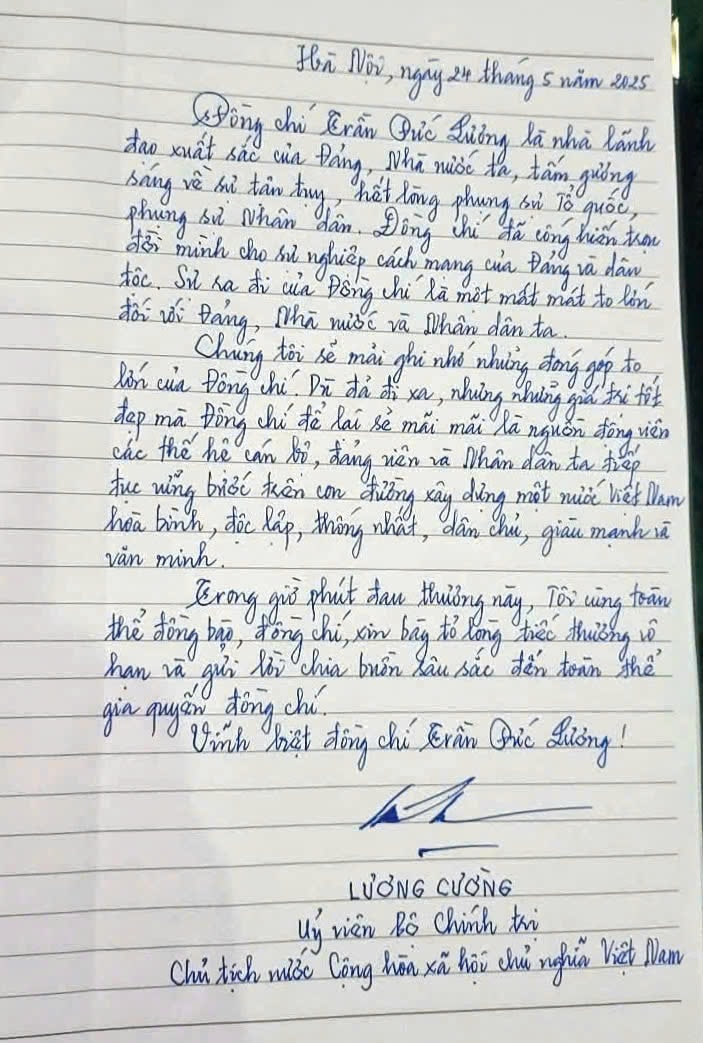 Hà Nội, ngày 24 tháng 5 năm 2025
Đồng chí Trần Đức Lương là nhà lãnh
đạo xuất sắc của Đảng, Nhà nước ta, tấm gương
sáng về sự tận tụy, hết lòng phụng sự Tổ quốc,
phụng sự Nhân dân. Đồng chí đã cống hiến trọn
đời mình cho sự nghiệp cách mạng của Đảng và dân
tộc. Sự ra đi của Đồng chí là một mất mát to lớn
đối với Đảng, Nhà nước và Nhân dân ta.
Chúng tôi sẽ mãi ghi nhớ những đóng góp to
lớn của Đồng chí. Dù đã đi xa, nhưng những giá trị tốt
đẹp mà Đồng chí để lại sẽ mãi mãi là nguồn động viên
các thế hệ cán bộ, đảng viên và Nhân dân ta tiếp
tục vững bước trên con đường xây dựng một nước Việt Nam
hòa bình, độc lập, thống nhất, dân chủ, giàu mạnh và
văn minh.
Trong giờ phút đau thương này, Tôi cùng toàn
thể đồng bào, đồng chí, xin bày tỏ lòng tiếc thương vô
hạn và gửi lời chia buồn sâu sắc đến toàn thể
gia quyến đồng chí.
Vĩnh biệt đồng chí Trần Đức Lương!
LƯƠNG CƯỜNG
Uỷ viên Bộ Chính trị
Chủ tịch nước Cộng hòa xã hội chủ nghĩa Việt Nam